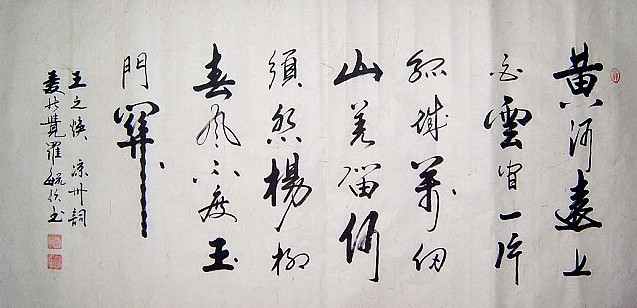 黄河遠上
白雲間一片
孤城萬仞
山羌笛何
須怨楊柳
春風不度玉
門關
王之渙 凉州詞
愛新覺羅毓 书